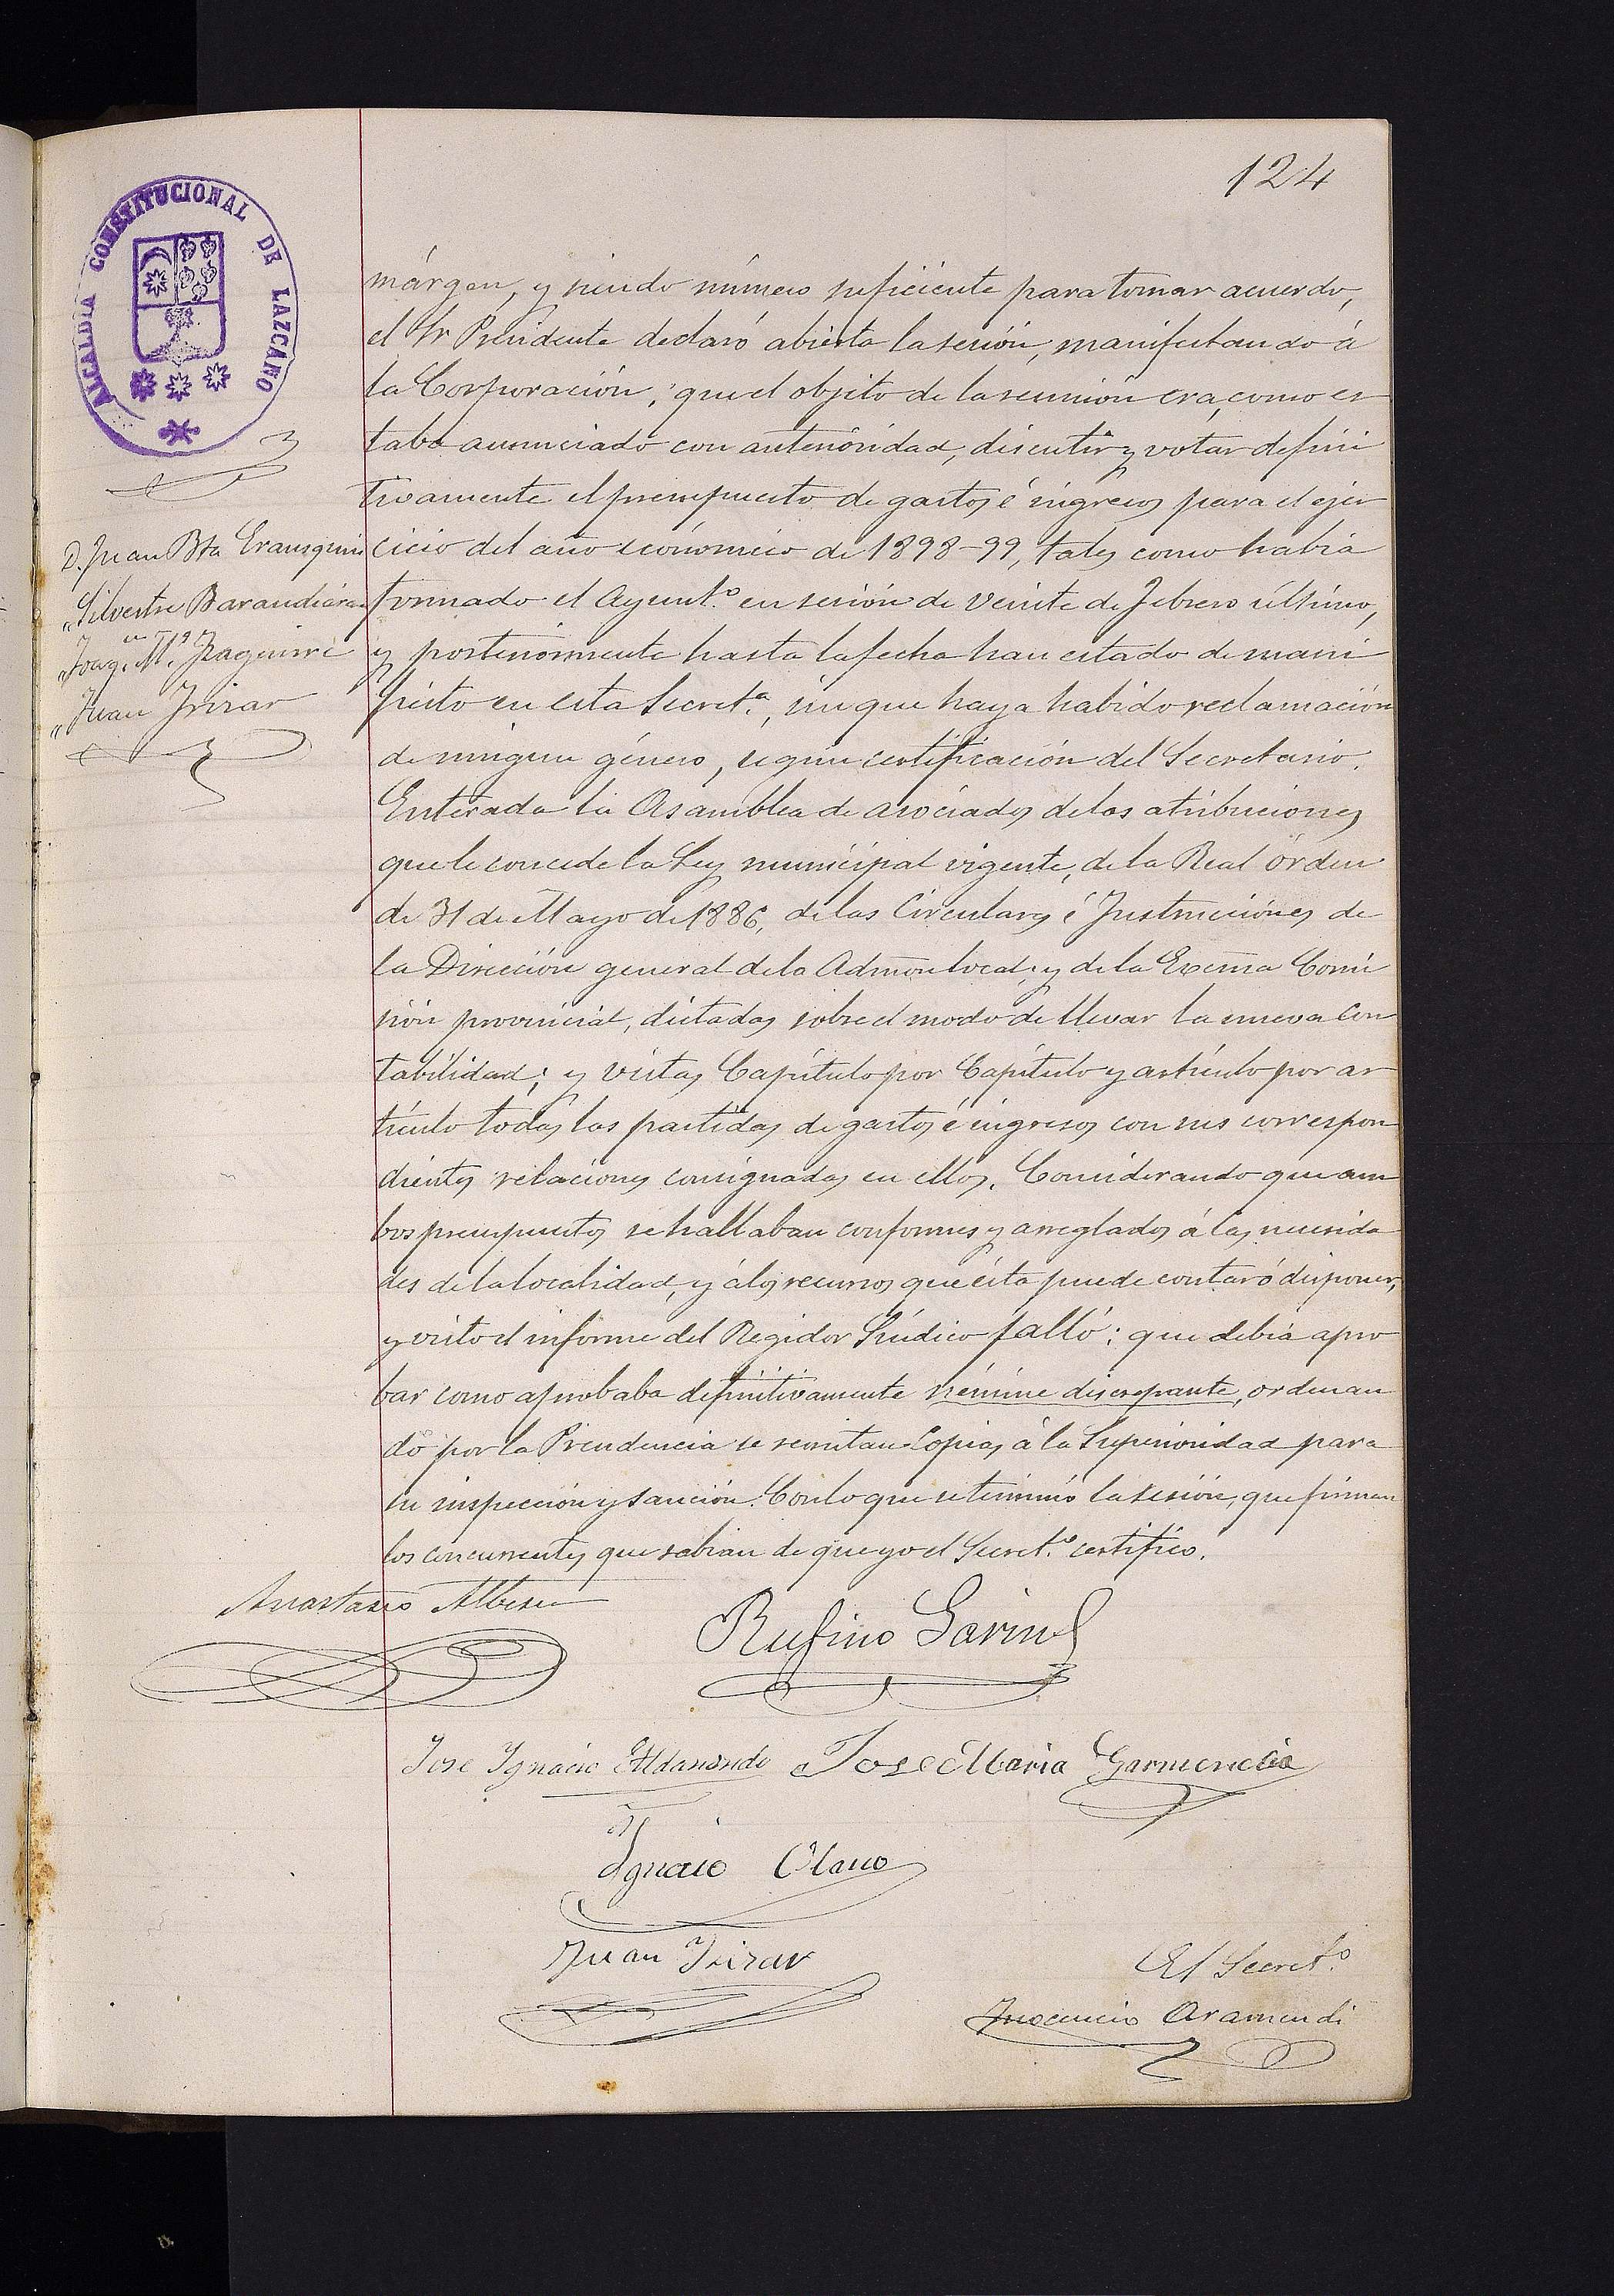 124
ALCALDIA CONSTITUCIONAL DE LAZCANO
D. Juan Bta Erausquin
" Silvestre Barandiaran
" Joaqn. Ma. Izaguirre
" Juan Irizar
márgen, y siendo número suficiente para tomar acuerdo,
el Sr Presidente declaró abierta la sesión, manifestando á
la Corporación; que el objeto de la reunión era, como es
taba anunciado con anterioridad, discutir y votar defini
tivamente el presupuesto de gastos é ingresos para el ejer
cicio del año económico de 1898-99, tales como habia
formado el Ayunt.o en sesión de veinte de Febrero último,
y posteriormente hasta la fecha han estado de mani
fiesto en esta Secret.a, sin que haya habido reclamación
de ningun género, segun certificación del Secretario.
Enterada la Asamblea de asociados de las atribuciones
que le concede la Ley municipal vigente, de la Real órden
de 31 de Mayo de 1886, de las Circulares é Instrucciones de
la Dirección general de la Admon local, y de la Excma Comi
sión provincial, dictadas sobre el modo de llevar la nueva Con
tabilidad; y vistas Capítulo por Capítulo y artículo por ar
tículo todas las partidas de gastos é ingresos con sus correspon
dientes relaciones consignadas en ellos. Considerando que am
bos presupuestos se hallaban conformes y arreglados á las necesida
des de la localidad, y á los recursos que ésta puede contar ó disponer,
y visto el informe del Regidor Síndico falló: que debia apro
bar como aprobaba definitivamente némine discrepante, ordenan
do por la Presidencia se remitan Copias á la Superioridad para
su inspección y sanción. Con lo que se terminó la sesión, que firman
los concurrentes que sabian de que yo el Secret.o certifico.
Anastasio Albisu
Rufino Garin
Jose Ignacio Aldanondo Jose Maria Garmendia
Ignacio Olano
Juan Irizar
El Secret.o
Inocencio Aramendi